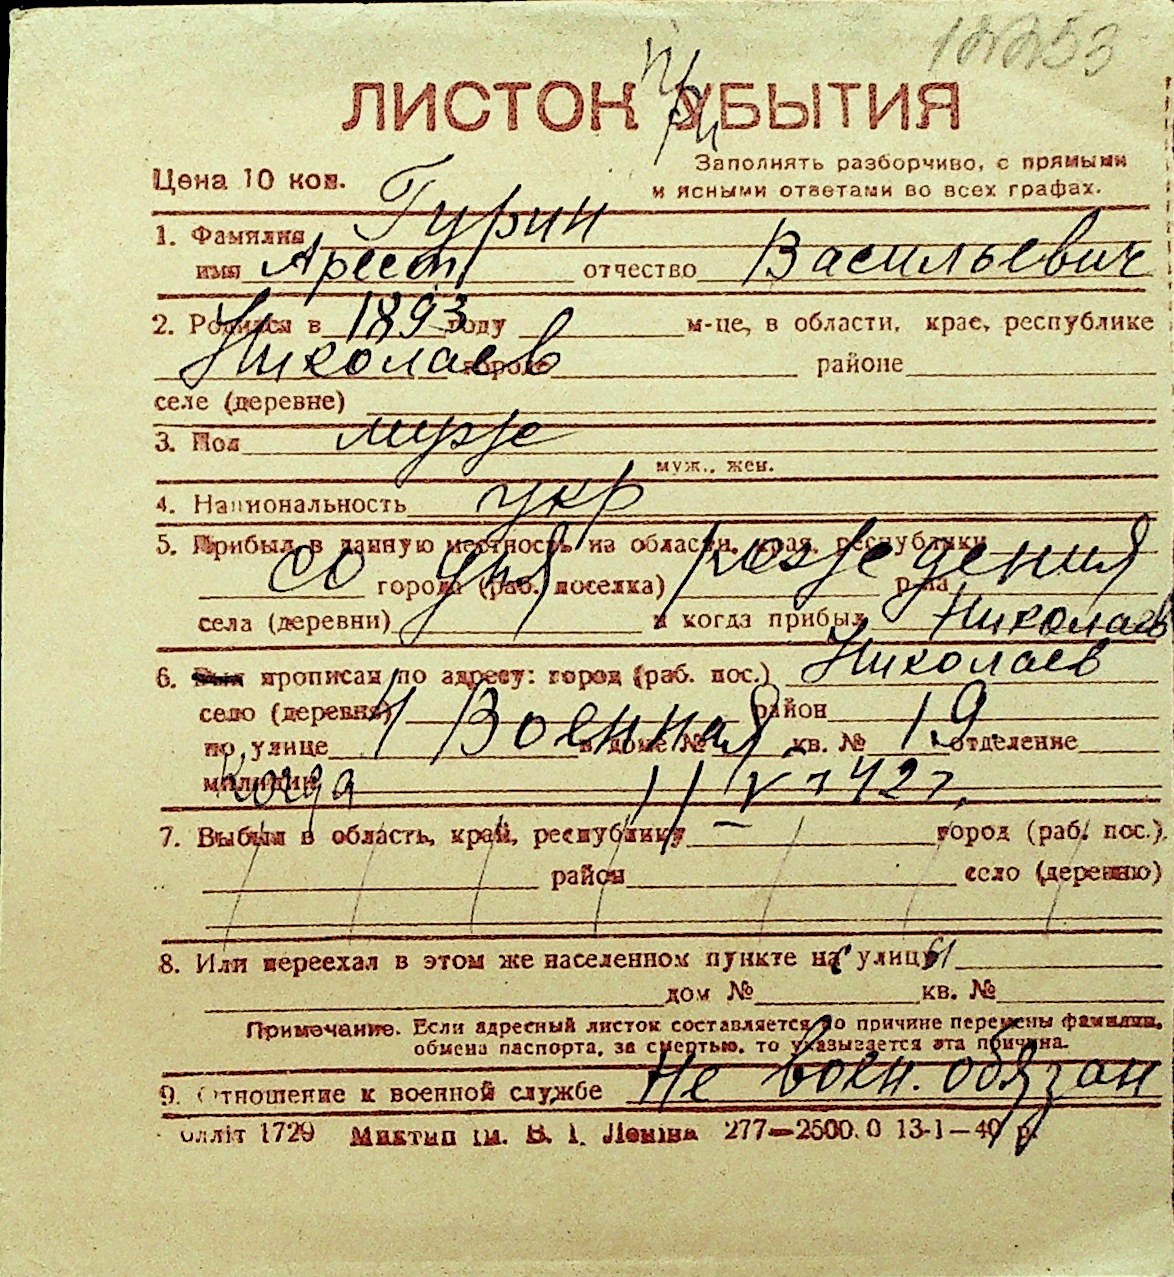 12253
при
ЛИСТОК УБЫТИЯ
Цена 10 коп.
Заполнять разборчиво, с прямыми
и ясными ответами во всех графах.
1. Фамилия Гурин
имя Арест отчество Васильевич
2. Родился в 1893 году м-це, в области, крае, республике
Николаев городе районе
селе (деревне)
3. Пол мужс
муж., жен.
4. Национальность укр
5. Прибыл в данную местность из области, края, республики
со дня рождения
города (раб. поселка) р-на
села (деревни) и когда прибыл Николаев
6. прописан по адресу: город (раб. пос.) Николаев
село (деревня) район
по улице 4 Военная в доме № кв. № 19. отделение
милиции когда 11 V 42 г.
7. Выбыл в область, край, республику город (раб. пос.),
район село (деревню)
8. Или переехал в этом же населенном пункте на улицу
дом № кв. №
Примечание. Если адресный листок составляется по причине перемены фамилии,
обмена паспорта, за смертью, то указывается эта причина.
9. Отношение к военной службе Не воен. обязан
олліт 1729 Миктип ім. В. І. Леніна 277—2500.0 13-1—40 р.